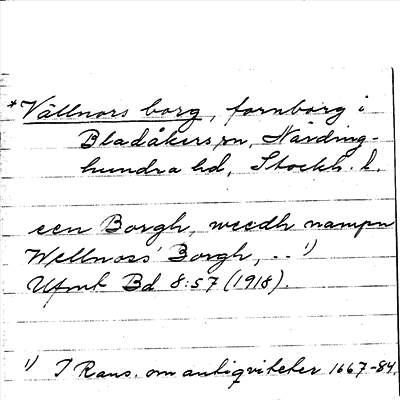 *Vällnors borg, fornborg i
Bladåkers sn, Närding-
hundra hd, Stockh. l.
een Borgh, weedh nampn
Wellnors' Borgh, .. 1)
Ufmt Bd 8:57 (1918).
1) I Rans. om antiqviteter 1667-84.